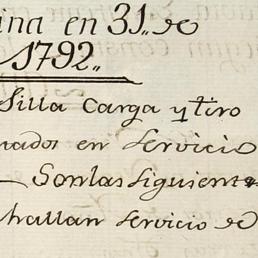 ina en 31,, de
1792,,
Silla Carga y tiro
nados en Servicio
Son las siguiente
hallan Servicio de